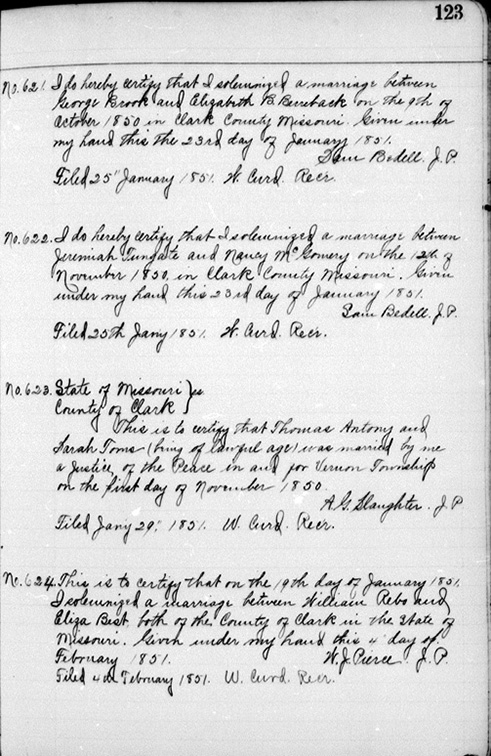 123
No. 621. I do hereby certify that I solemnized a marriage between
George Brook and Elizabeth B. on the 9th of
October 1850 in Clark County Missouri. Given under
my hand this the 23rd day of January 1851.
Sam Bedell. J.P.
Filed 25" January 1851. W. Curd. Recr.
No. 622. I do hereby certify that I solemnized a marriage between
Jeremiah Tungate and Nancy McGomery on the 12th of
November 1850, in Clark County Missouri. Given
under my hand this 23rd day of January 1851.
Sam Bedell. J.P.
Filed 25th Jany 1851. W. Curd. Recr.
No. 623. State of Missouri } ss
County of Clark }
This is to certify that Thomas Antony and
Sarah Toms (being of lawful age) was married by me
a Justice of the Peace in and for Vernon Township
on the first day of November 1850.
A. G. Slaughter. J.P
Filed Jany 29" 1851. W. Curd. Recr.
No. 624. This is to certify that on the 19th day of January 1851.
I solemnized a marriage between William Rebo and
Eliza Best both of the County of Clark in the State of
Missouri. Given under my hand this 4" day of
February 1851. W. J. Pierce. J.P.
Filed 4th February 1851. W. Curd. Recr.